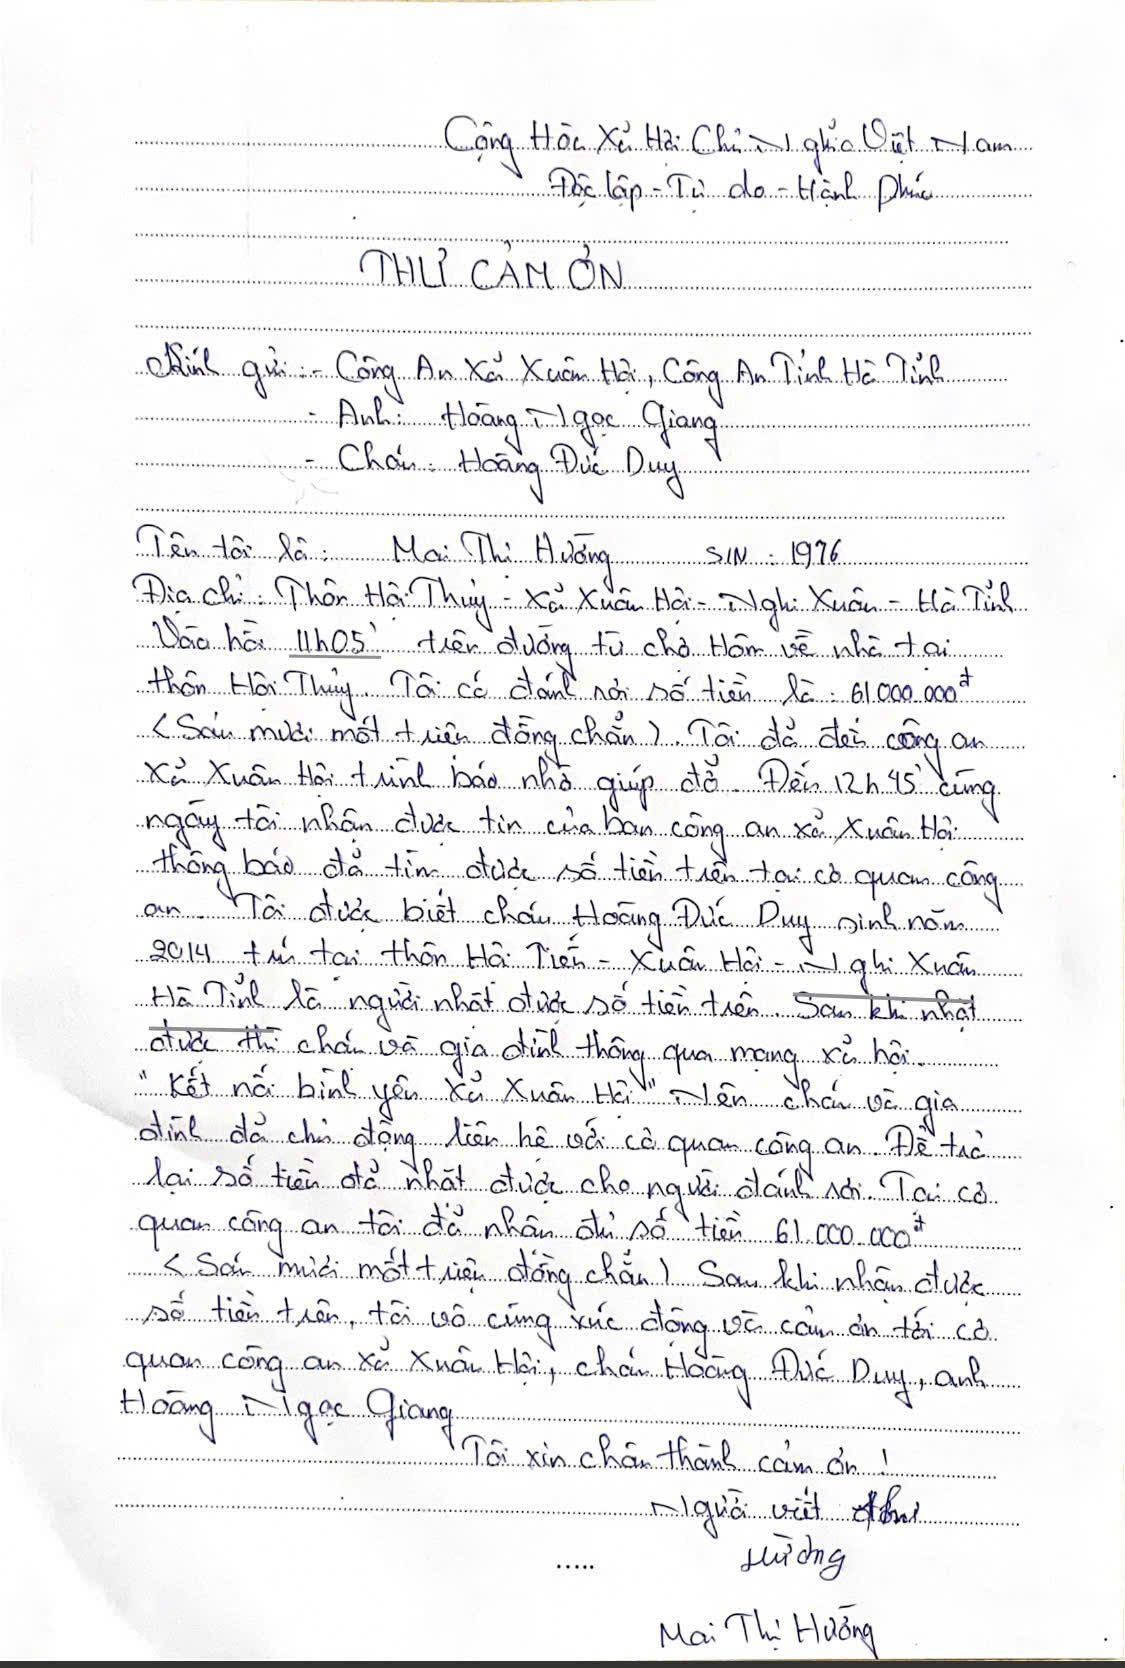 Cộng Hòa Xã Hội Chủ Nghĩa Việt Nam
Độc lập - Tự do - Hạnh Phúc
THƯ CẢM ƠN
Kính gửi: - Công An Xã Xuân Hội, Công An Tỉnh Hà Tĩnh
- Anh: Hoàng Ngọc Giang
- Cháu: Hoàng Đức Duy
Tên tôi là: Mai Thị Hường SIN: 1976
Địa chỉ: Thôn Hội Thủy - Xã Xuân Hội - Nghi Xuân - Hà Tĩnh
Vào hồi 11h05' trên đường từ chợ Hôm về nhà tại
thôn Hội Thủy. Tôi có đánh rơi số tiền là: 61.000.000đ
<Sáu mươi mốt triệu đồng chẵn). Tôi đã đến công an
xã Xuân Hội trình báo nhờ giúp đỡ. Đến 12h45' cùng
ngày tôi nhận được tin của ban công an xã Xuân Hội
thông báo đã tìm được số tiền trên tại cơ quan công
an. Tôi được biết cháu Hoàng Đức Duy sinh năm
2014 trú tại thôn Hội Tiến - Xuân Hội - Nghi Xuân
Hà Tĩnh là người nhặt được số tiền trên. Sau khi nhặt
được thì cháu và gia đình thông qua mạng xã hội.
"Kết nối bình yên Xã Xuân Hội" Nên cháu và gia
đình đã chủ động liên hệ với cơ quan công an. Để trả
lại số tiền đã nhặt được cho người đánh rơi. Tại cơ
quan công an tôi đã nhận đủ số tiền 61.000.000đ
<Sáu mươi mốt triệu đồng chẵn) Sau khi nhận được
số tiền trên, tôi vô cùng xúc động và cảm ơn tới cơ
quan công an xã Xuân Hội, cháu Hoàng Đức Duy, anh
Hoàng Ngọc Giang
Tôi xin chân thành cảm ơn!
Người viết
Hường
.....
Mai Thị Hường